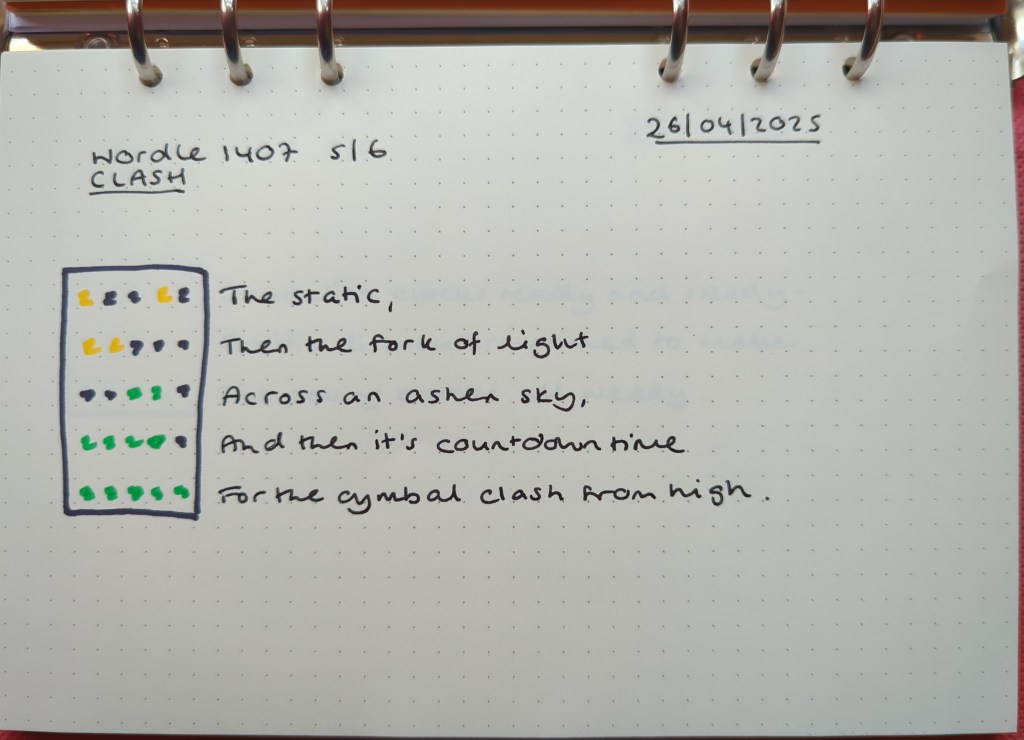 26/04/2025
Wordle 1407 5/6
CLASH
The static,
Then the fork of light
Across an ashen sky,
And then it's countdown time
For the cymbal clash from high.